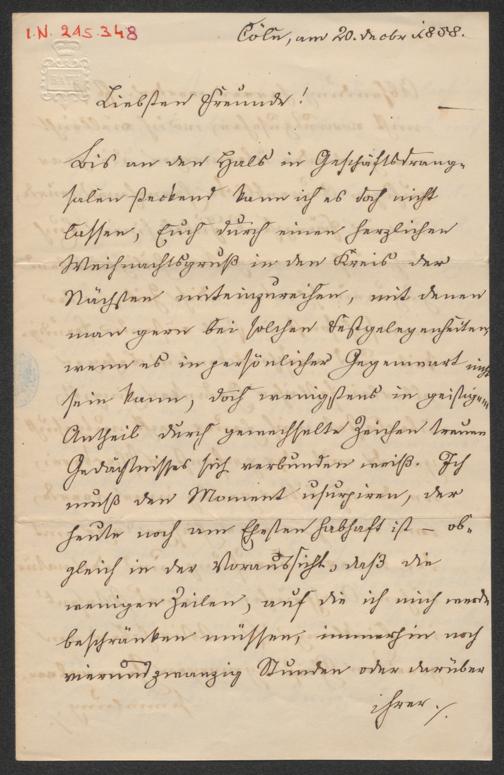 I.N. 245.348
BATH
Cöln, am 20. Decbr 1888.
Liebsten Freunde!
Bis an den Hals in Geschäftsdrang-
salen steckend kann ich es doch nicht
lassen, Euch durch einen herzlichen
Weihnachtsgruß in den Kreis der
Nächsten miteinzureihen, mit denen
man gern bei solchen Festgelegenheiten,
wenn es in persönlicher Gegenwart nicht
sein kann, doch wenigstens in geistigem
Antheil durch gewechselte Zeichen treuen
Gedächtnisses sich verbunden weiß. Ich
muß den Moment usurpiren, der
heute noch am Ehesten habhaft ist – ob-
gleich in der Voraussicht, daß die
wenigen Zeilen, auf die ich mich werde
beschränken müssen, immerhin noch
vierundzwanzig Stunden oder darüber
ihrer ./.